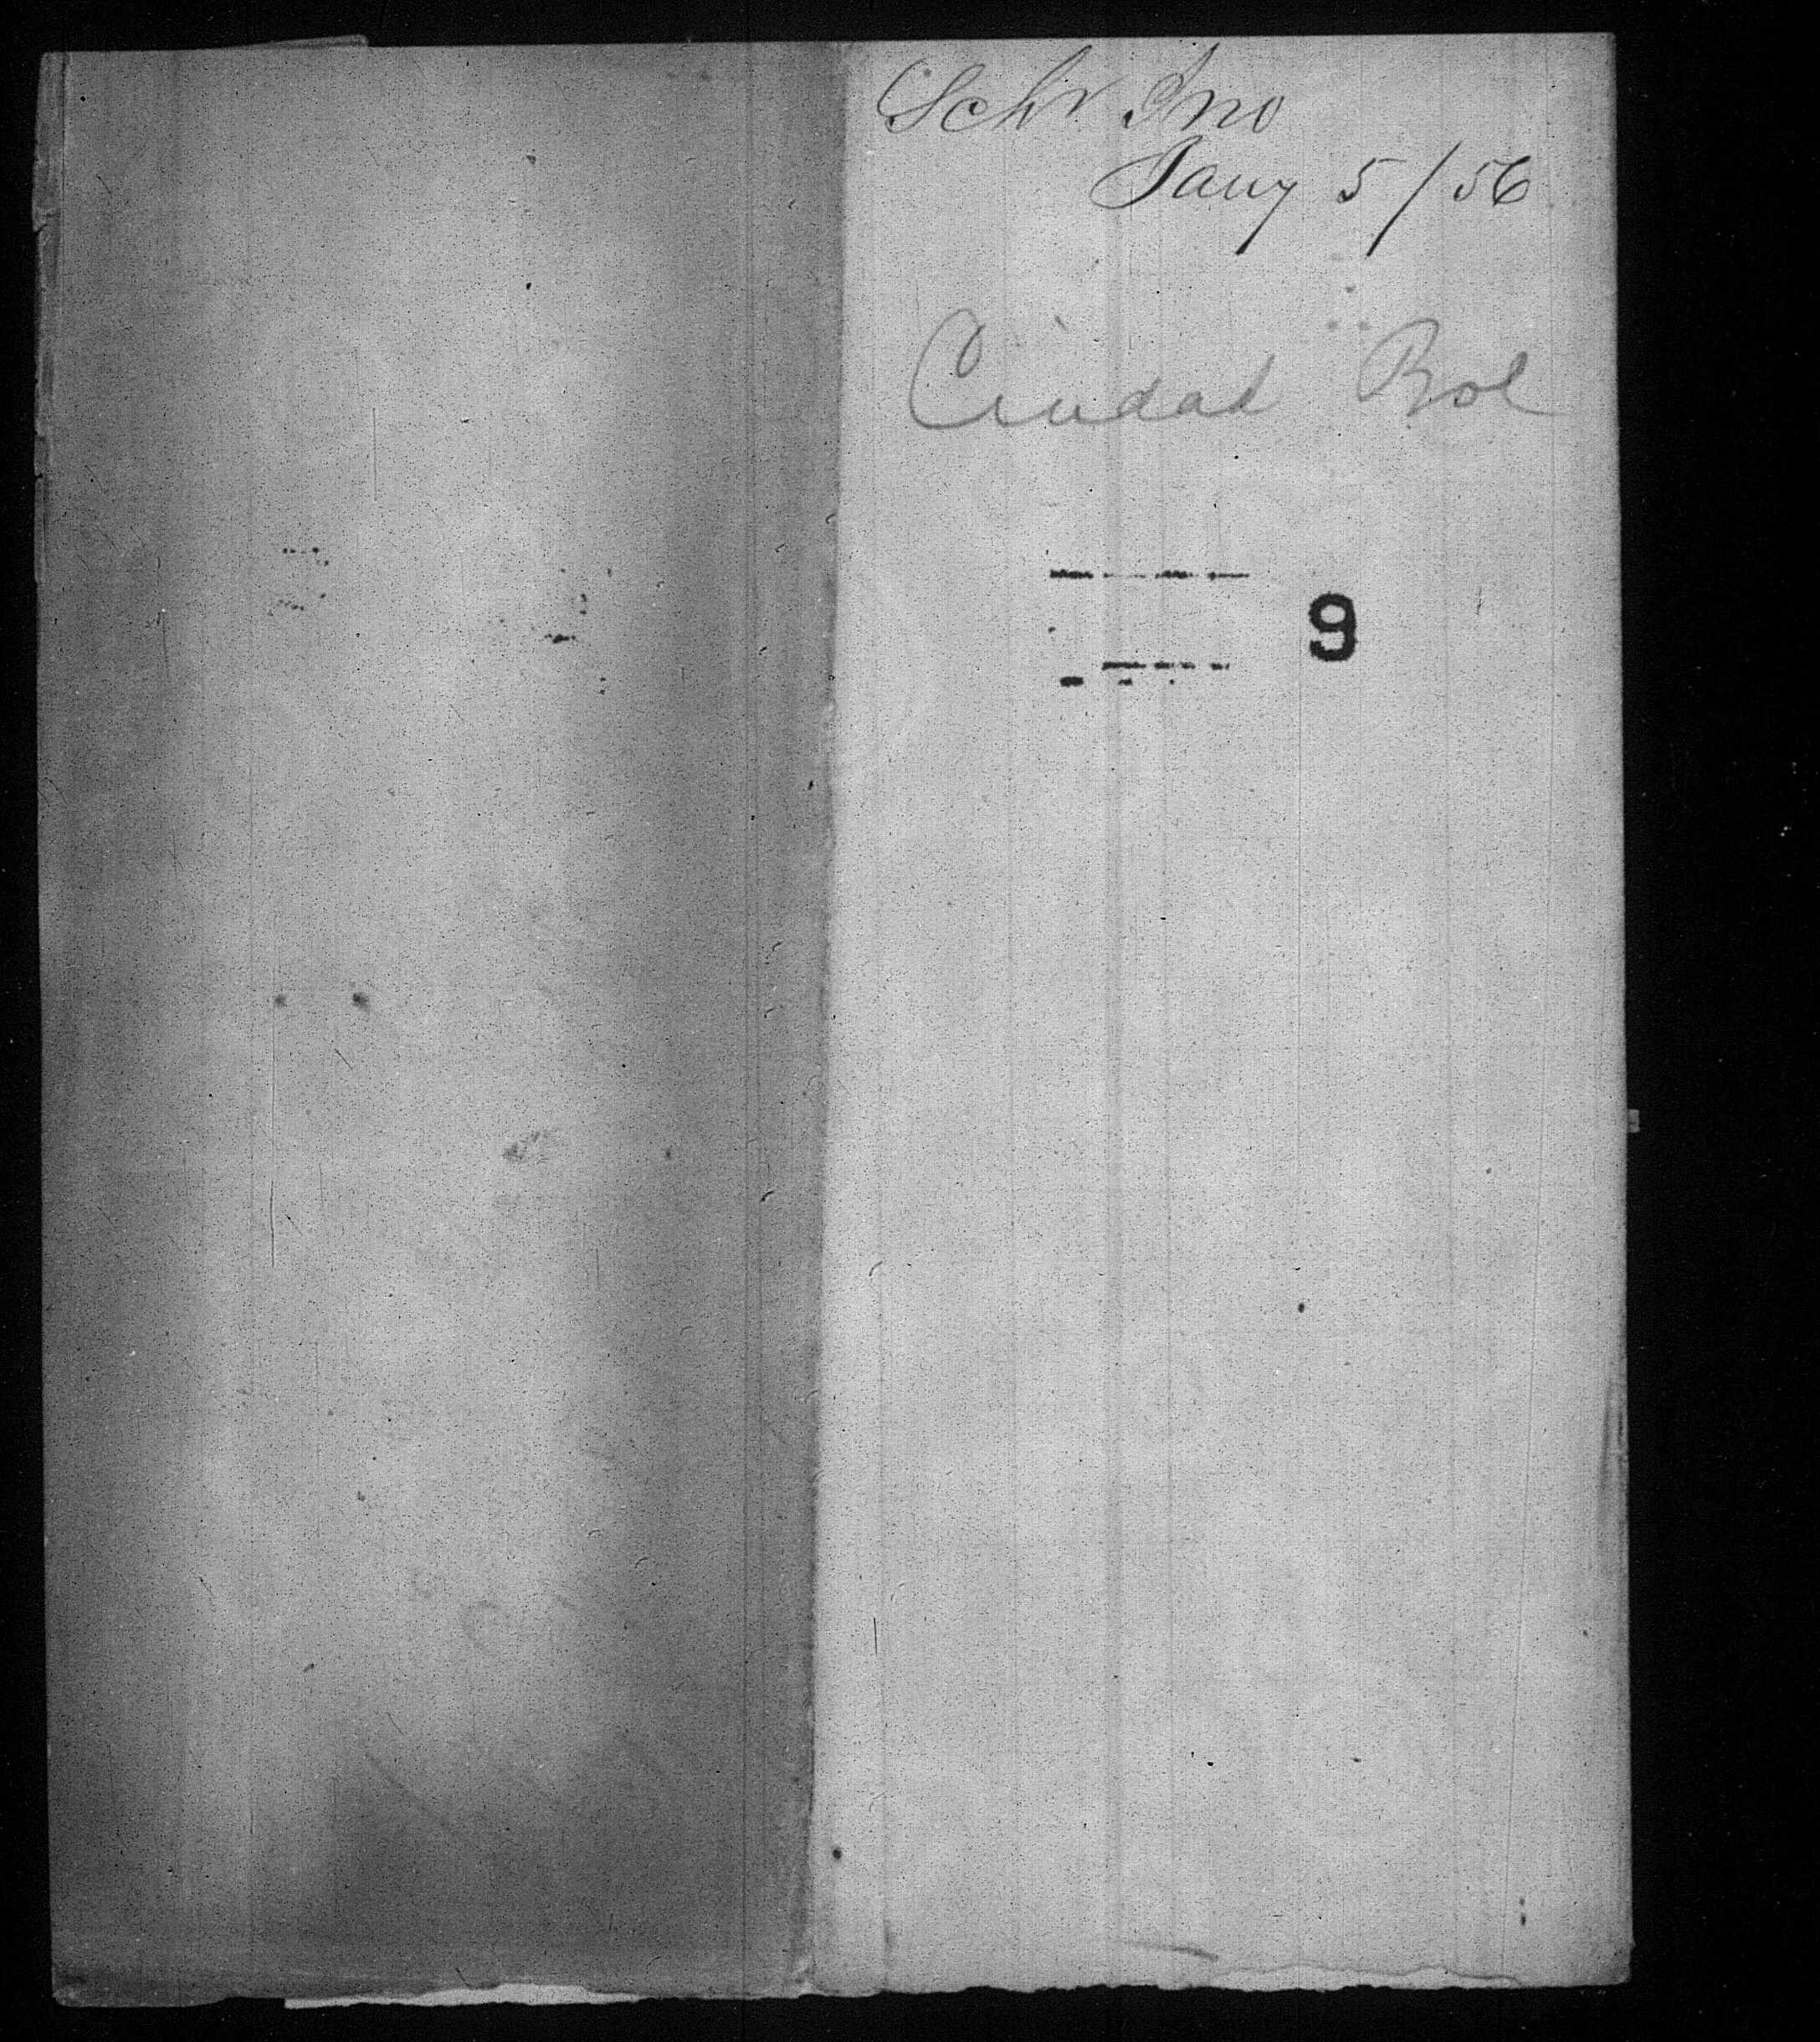 Schr Ino
Jany 5/56
Ciudad Bol
9